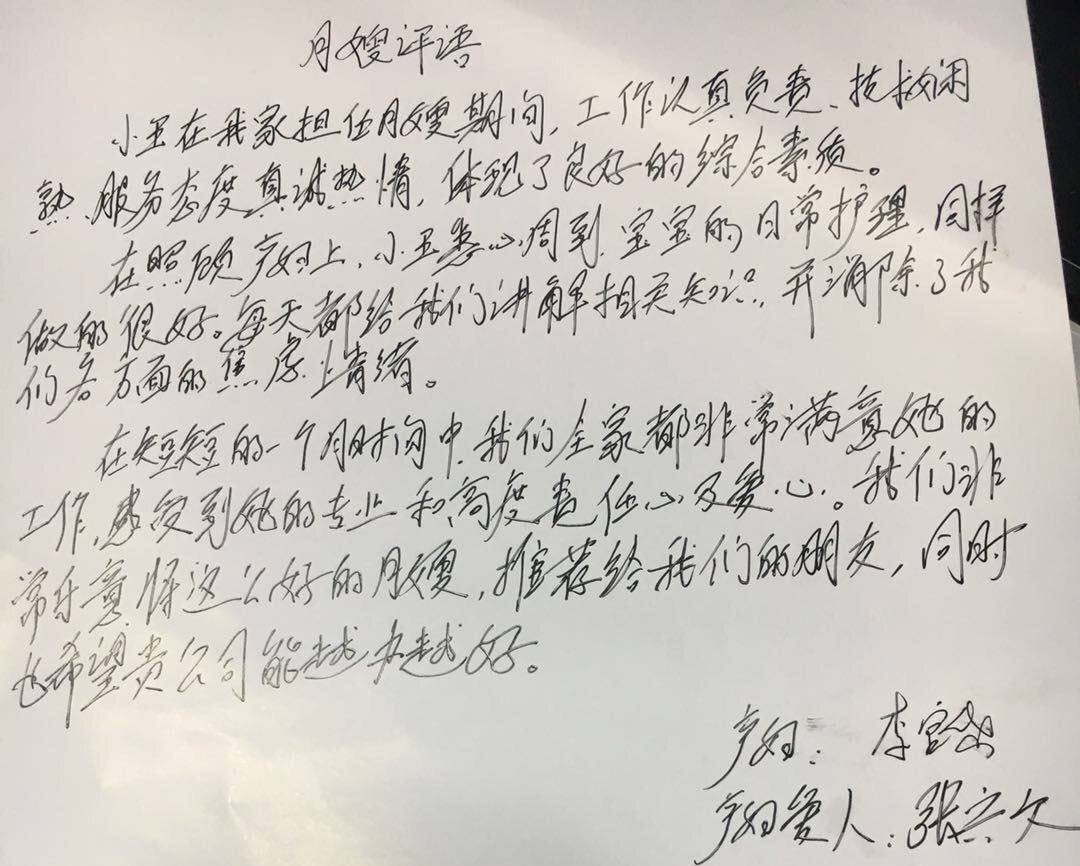 月嫂评语
小卫在我家担任月嫂期间，工作认真负责、技术娴
熟、服务态度真诚热情，体现了良好的综合素质。
在照顾产妇上，小卫悉心周到，宝宝的日常护理，同样
做的很好。每天都给我们讲解相关知识，并消除了我
们各方面的焦虑情绪。
在短短的一个月时间中，我们全家都非常满意她的
工作，感受到她的专业和高度责任心及爱心。我们非
常乐意将这么好的月嫂，推荐给我们的朋友，同时
也希望贵公司能越办越好。
产妇：李
产妇爱人：张